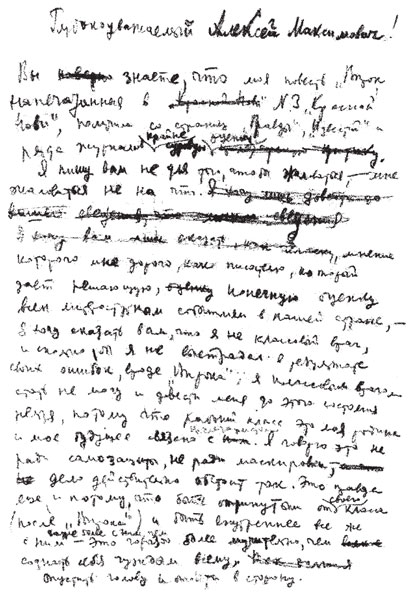 Глубокоуважаемый Алексей Максимович!
Вы знаете, что моя повесть „Впрок",
напечатанная в № 3 „Красной
Нови", получила со страниц „Правды", „Известий" и
ряда журналов крайне оценку
Я пишу вам не для того, чтобы жаловаться, — мне
жаловаться не на что.
Я хочу вам сказать, как человеку, мнение
которого мне дорого, как писателю, который
дает решающую, конечную оценку
всем литературным событиям в нашей стране, —
я хочу сказать вам, что я не классовый враг,
и сколько бы я не выстрадал в результате
своих ошибок, вроде „Впрока", я классовым врагом
стать не могу и довести меня до этого состояния
нельзя, потому что рабочий класс это моя родина
и мое будущее связано с пролетариатом. Я говорю это не
ради самозащиты, не ради маскировки, —
дело действительно обстоит так. Это правда
еще и потому, что быть отвергнутым своего класса
(после „Впрока") и быть внутренне все же
с ним — это гораздо более мучительно, чем
сознать себя чуждым всему,
опустить голову и отойти в сторону.